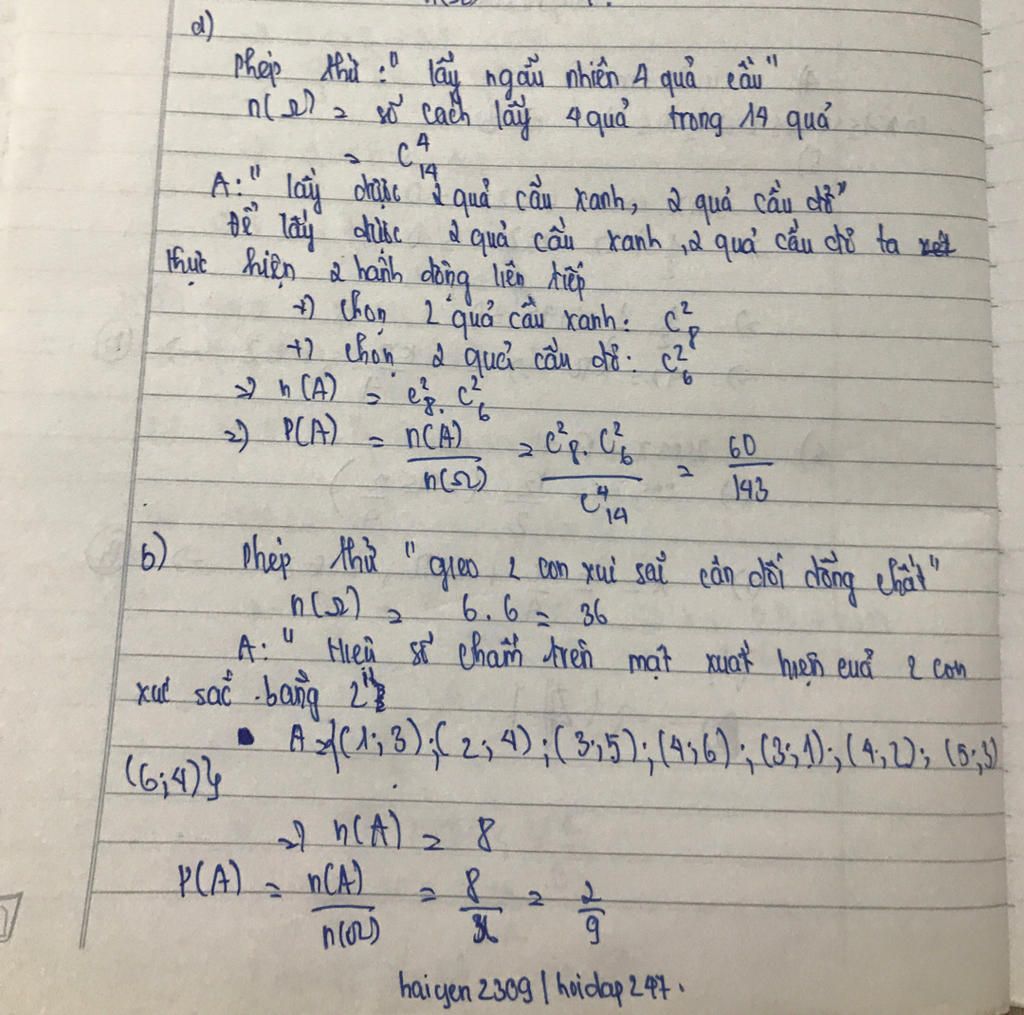 a)
Phép thử : " lấy ngẫu nhiên 4 quả cầu"
n(Ω) = số cách lấy 4 quả trong 14 quả
= C⁴₁₄
A: " lấy được 2 quả cầu xanh, 2 quả cầu đỏ"
Để lấy được 2 quả cầu xanh, 2 quả cầu đỏ ta
thực hiện 2 hành động liên tiếp
+) chọn 2 quả cầu xanh: C²₈
+) chọn 2 quả cầu đỏ: C²₆
=> n(A) = C²₈. C²₆
=> P(A) = n(A)/n(Ω) = C²₈. C²₆/C⁴₁₄ = 60/143
b) Phép thử " gieo 2 con xúc sắc cân đối đồng chất"
n(Ω) = 6.6 = 36
A: " Hiệu số chấm trên mặt xuất hiện của 2 con
xúc sắc bằng 2"
A={(1;3);(2;4);(3;5);(4;6);(3;1);(4;2);(5;3)
(6;4)}
=> n(A) = 8
P(A) = n(A)/n(Ω) = 8/36 = 2/9
haiyen2309/hoidap247.